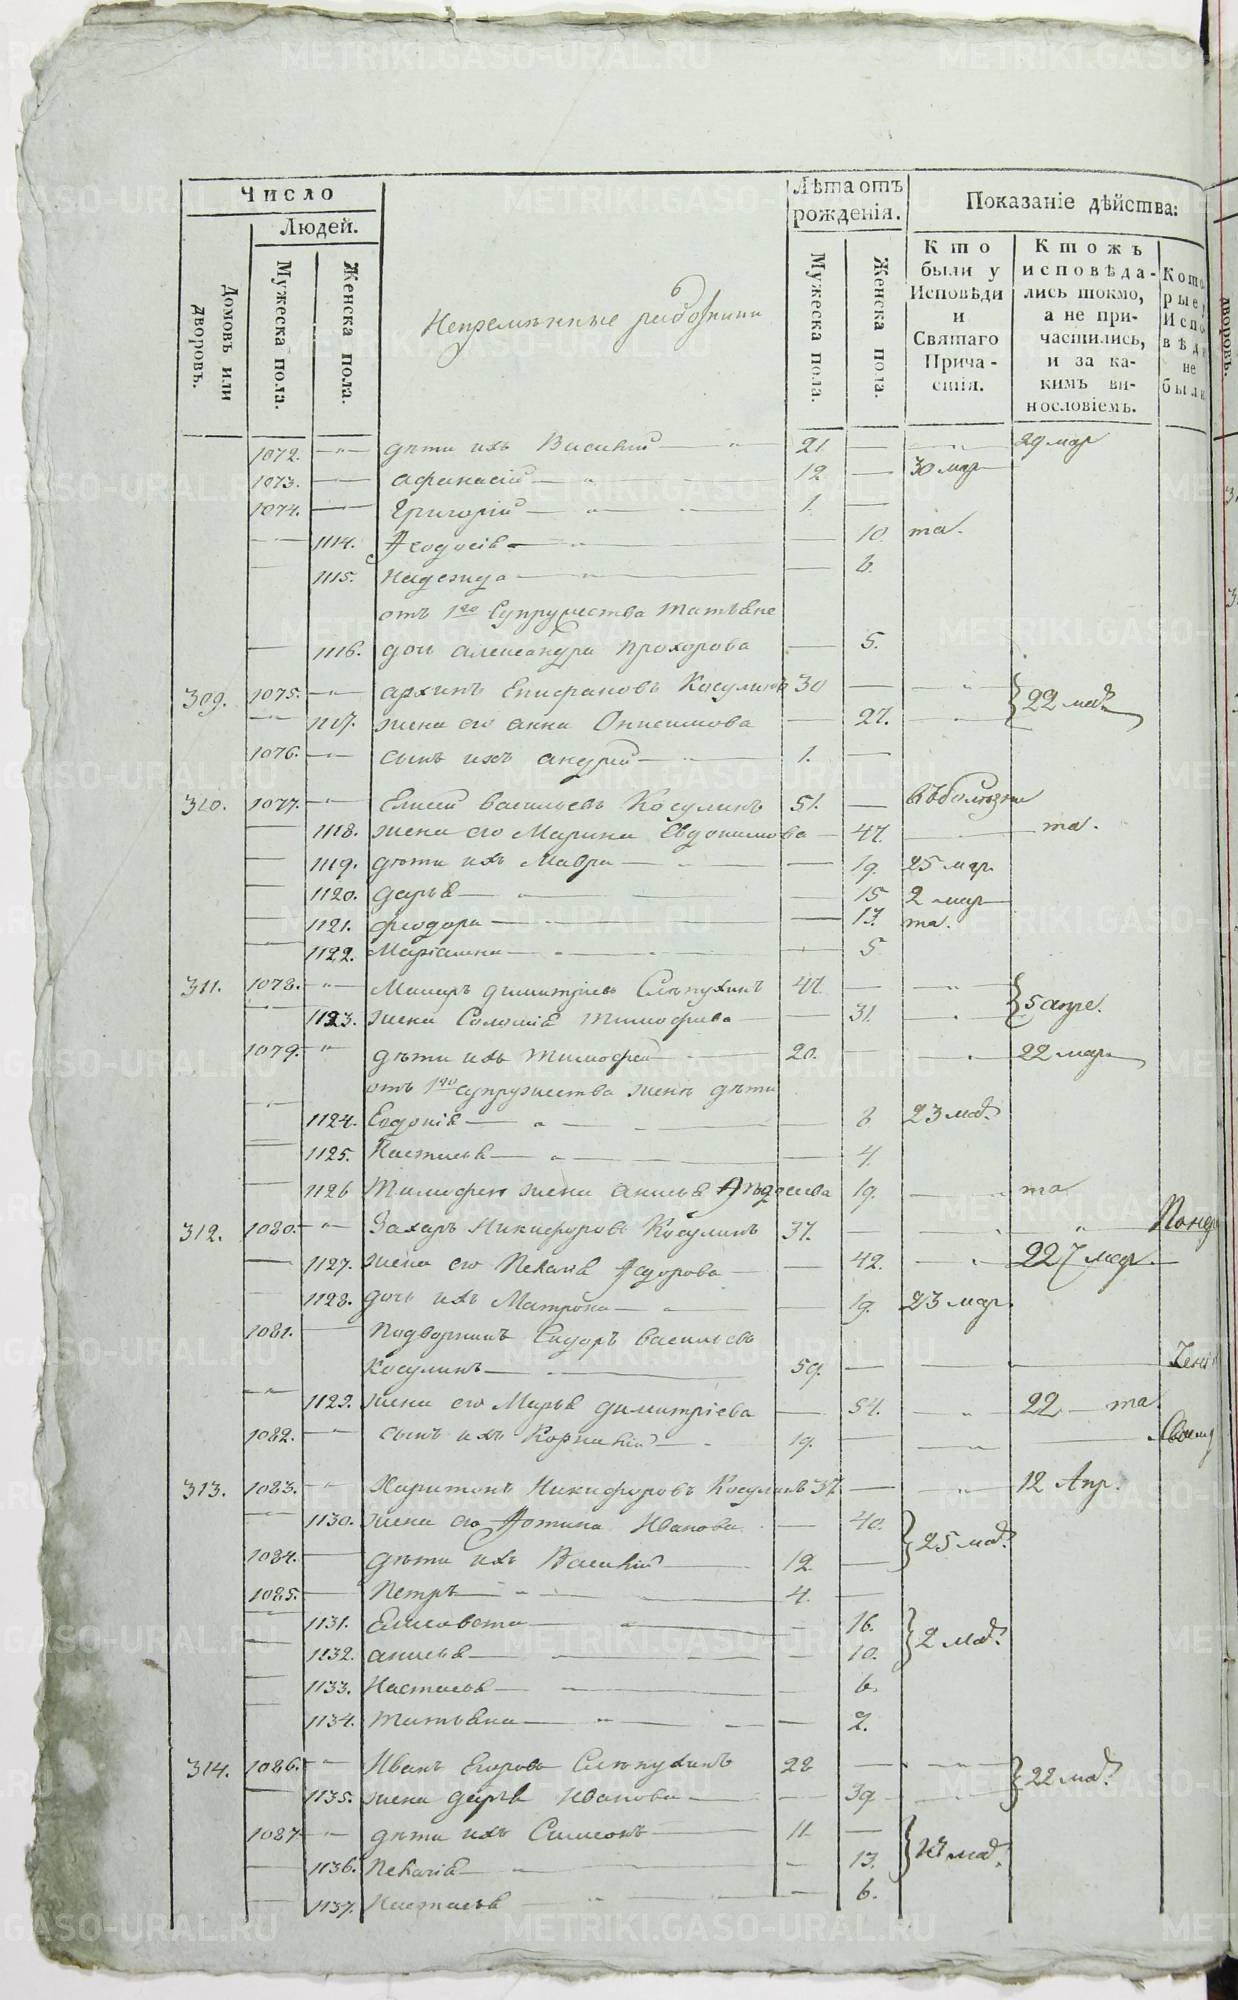 Число
Людей.
Домовъ или дворовъ.
Мужеска пола.
Женска пола.
Непремѣнные работники
Лѣта отъ рожденія.
Мужеска пола.
Женска пола.
Показаніе дѣйства:
Кто были у Исповѣди и Святаго Причастія.
Ктожъ исповѣдались токмо, а не причастились, и за какимъ винословіемъ.
Которые у Исповѣди не были
1072. — дѣти ихъ Василій — 21 — — 29 мар
1073. — афанасій — 12 — 30 мар
1074. — Григорій — 1. —
— 1114. Ѳеодосія — — 10 та.
— 1115. Надежда — — 8.
отъ 1го Супружества татьяне
— 1116. дочь александра Прохорова — 5.
309. 1075. — архипъ Епифановъ Косулинъ 30 — — 22 мар
— 1117. жена его анна Онисимова — 27. —
1076. — сынъ ихъ андрей — 1. —
310. 1077. — Елисей васильевъ Косулинъ 51. — въ болѣзни
— 1118. жена его Марина Евдокимова — 47. — та.
— 1119. дѣти ихъ Мавра — — 19. 25 мар
— 1120. дарья — — 15 2 мар
— 1121. феодора — — 13. та.
— 1122. Маріамна — — 5
311. 1078. — димитріевъ Слѣпухинъ 47. — — 5 апре.
— 1123. жена Соломія тимофѣева — 31. —
1079. — дѣти ихъ тимофей — 20. — — 22 мар.
отъ 1го супружества женѣ дѣти
— 1124. Евдокія — — 8 23 мар
— 1125. Настасья — — 4.
— 1126 Тимофею жена анисья Ѳаддеева 19. — та
312. 1080. — Захаръ Никифоровъ Косулинъ 37. — — —
— 1127. жена его Пелагія Ѳедорова — 42. — 22 мар. —
— 1128. дочь ихъ Матрона — — 19. 23 мар.
1081. — Подворникъ Сидоръ васильевъ
Косулинъ — 59. — — —
— 1129. жена его Марья димитріева — 54. — 22 — та
1082. — сынъ ихъ Корнилій — 19. — — —
313. 1083. — Харитонъ Никифоровъ Косулинъ 37. — — 12 Апр.
— 1130. жена его Фотина Иванова — 40. 25 мар
1084. — дѣти ихъ Василій — 12. —
1085. — Петръ — 4. —
— 1131. Елисавета — — 16. 2 мар
— 1132. анисья — — 10.
— 1133. Настасья — — 6.
— 1134. татьяна — — 2.
314. 1086. — Иванъ Егоровъ Слѣпухинъ 28 — — 22 мар
— 1135. жена дарья Иванова — — 39. —
1087 — дѣти ихъ Симеонъ — 11. —
— 1136. Пелагія — — 13.
— 1137. Настасья — — 6.